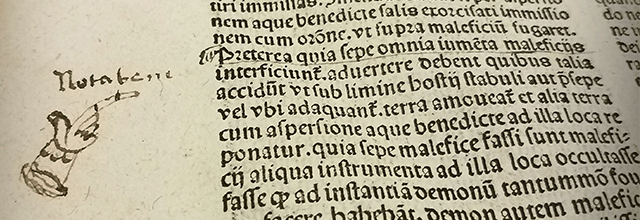 tiri immissas.
nem aque benedicte salis exorcisati immissio
nem cum orōne. vt supra maleficiū fugaret.
Preterea quia sepe omnia iumēta maleficijs
Nota bene
interficiunt̄. aduertere debent quibus talia
accidūt vt sub limine hostij stabuli aut p̄sepe
vel vbi adaquant̄. terra amoueat̄ et alia terra
cum aspersione aque benedicte ad illa loca re
ponatur. quia sepe malefice fassi sunt malefi-
cij aliqua instrumenta ad illa loca occultasse
fasse ꝙ ad instantiā demonū tantummō fou
facere habebāt. demon autem malefic